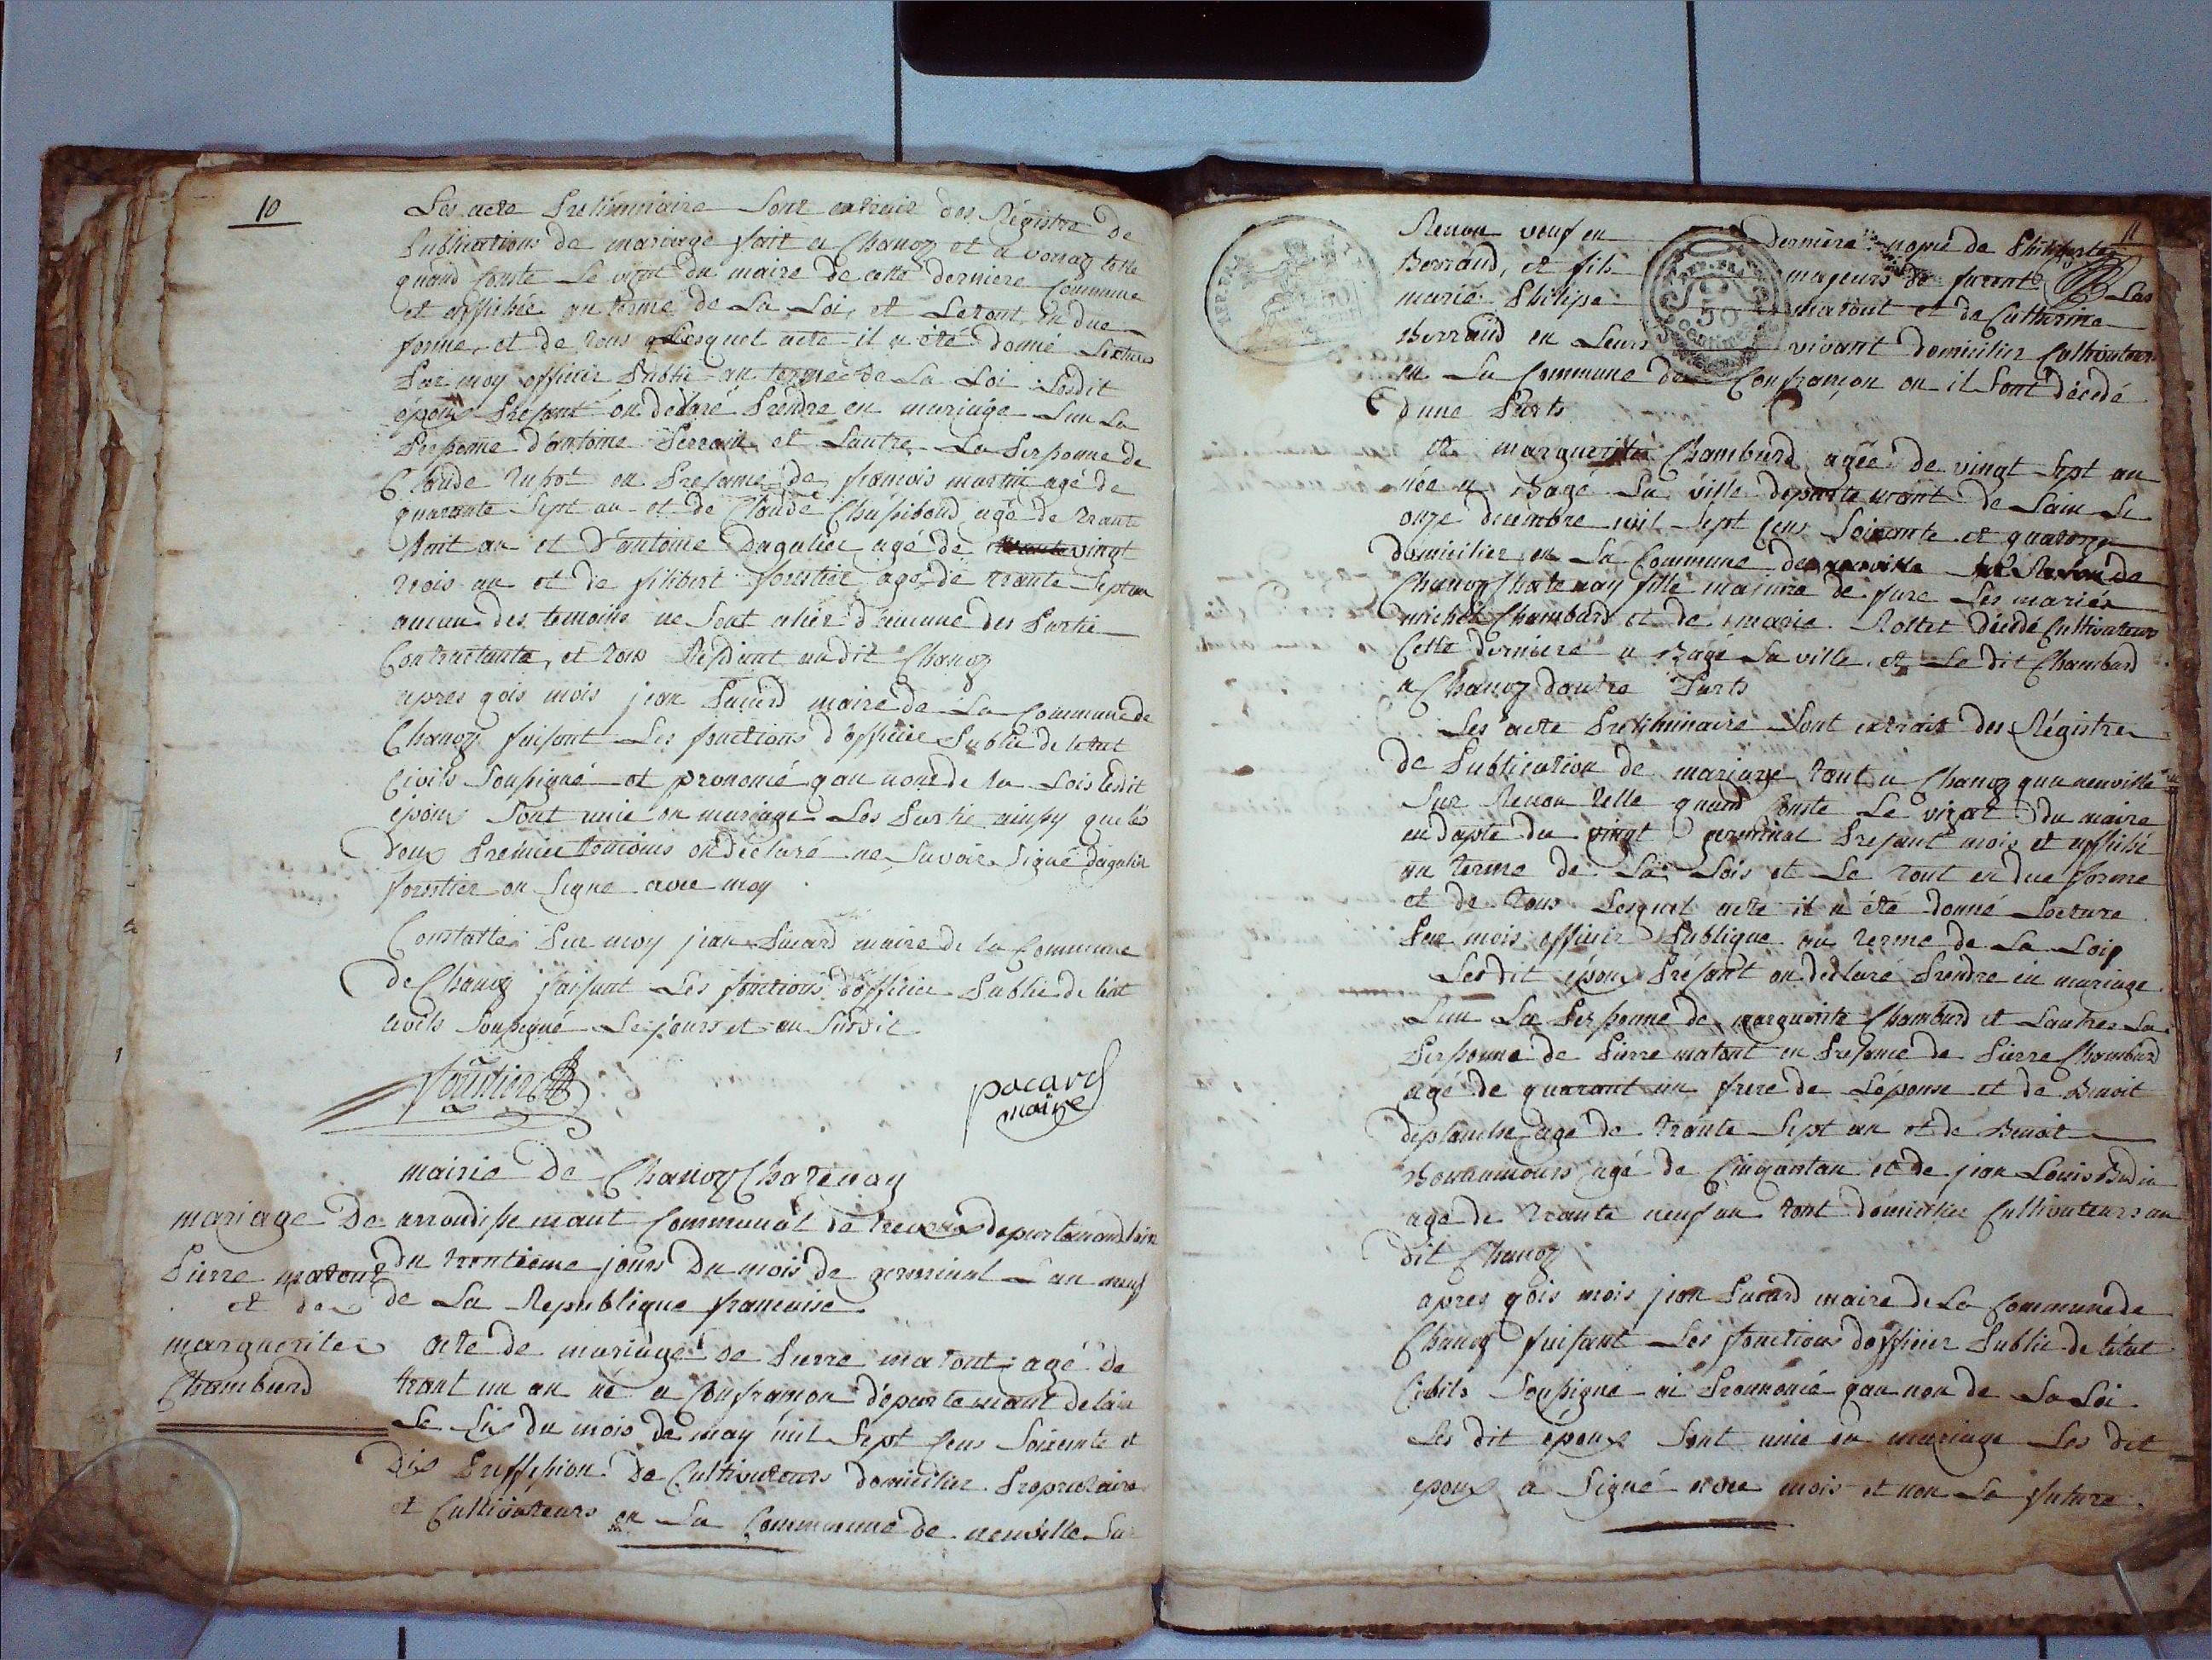 10
Les acte Preliminaire Sont extrait des Régistre de
Publications de mariage fait a Chanoz et a vonag telle
quand Conste Le vizat du maire de cette derniere Commune
et affichée au terme de La Loi, et Le tout en due
forme, et de tous Lesquel acte il a été donné Lecture
Par moy officier Public au terme de La Loi Lesdit
époux Present on declaré Prendre en mariage Lun La
Personne d'antoine Perrain et Lautre La Personne de
Claude en Presance de francois martin agé de
quarante Sept an et de Claude agé de trante
huit an et D'antoine Dagalier agé de vingt
trois an et de filibert forestier agé de trante Sept an
aucun des temoins ne Sont alier d'aucune des Partie
Contractante, et tous Residant audit Chanoz
apres qois mois jean Pucard maire de La Commune de
Chanoz faisant Les fonctions d'officie Public de letat
Civils Sousigné et prononcé qau nom de la Lois Lesdit
époux Sont unie en mariage Les Partie ainsy que les
deux Premier temoins on déclaré ne Savoir Signé Dagalier
forestier on Signe avec moy
Constatte Par moy jean Pucard maire de la Commune
de Chanoz faisant Les fonctions d'officier Public de létat
civils Sousigné Le jours et an Susdit
pocard
maire
mairie De Chanoz Chatenay
mariage De
Pierre matout
et de
marguerite
Chambard
arrondissemant Communal de trevoux departemand lain
du trentième jours Du mois de germinal L'an neuf
de La Republique francaise
acte de mariage de Pierre matout agé de
trant un an né a Confrancon departemant de lain
Le Six du mois de may mil Sept Cens Soixente et
Dix Proffesion De Cultivateurs domicilier Proprietaire
et Cultivateurs en La Commune de neuville Sur
11
REP. FRA.
REP. FRA.
50
centimes
Renon veuf en derniere nopce de
Berraud, et fils majeurs de furent Les
marié Philipe matout et de Catherine
Berraud en Leurs vivant domicilier Cultivateurs
en La Commune de Confrançon ou il Sont décedé
dune Parts
Et marguerite Chambard agée de vingt Sept an
née a Bage La ville departemant de Lain Le
onze decembre mil Sept Cens Soixante et quatorze
domicilier en La Commune de
Chanoz Chatenay fille majeure de fure Les mariés
michel Chambard et de marie Rollet décedé Cultivateurs
Cette derniere a Bagé La ville et Le dit Chambard
a Chanoz dautre Parts
Les acte Preliminaire Sont extrait des Régistre
de Publication de mariage tant a Chanoz qua neuville
Sur Renon telle quand Conste Le vizat Du maire
en dapte du vingt germinal Presant mois et affiché
au terme de La Lois et Le tout en due forme
et de tous Lesquel acte il a éte donné Lecture
Par mois officier Publique au terme de La Loi
Lesdit époux Présant on declaré Prendre en mariage
Lun La Personne de marguerite Chambard et Lautre La
Personne de Pierre matout en Presance de Pierre Chambard
agé de quarant un frere de Lépouse et de Benoit
deplanche agé de trante Sept an et de Benoit
Bonnamours agé de Cinqantan et de jean Louis Bodin
agé de trante neuf an tout domicilier Cultivateurs au
dit Chanoz
apres qois mois jean Pucard maire de La Commune de
Chanoz faisant Les fonctions d'officier Public de létat
Civils Sousigné ai Prononcé qau non de La Loi
Les dit époux Sont unie en mariage Les dit
epoux a Signé avec mois et non La future